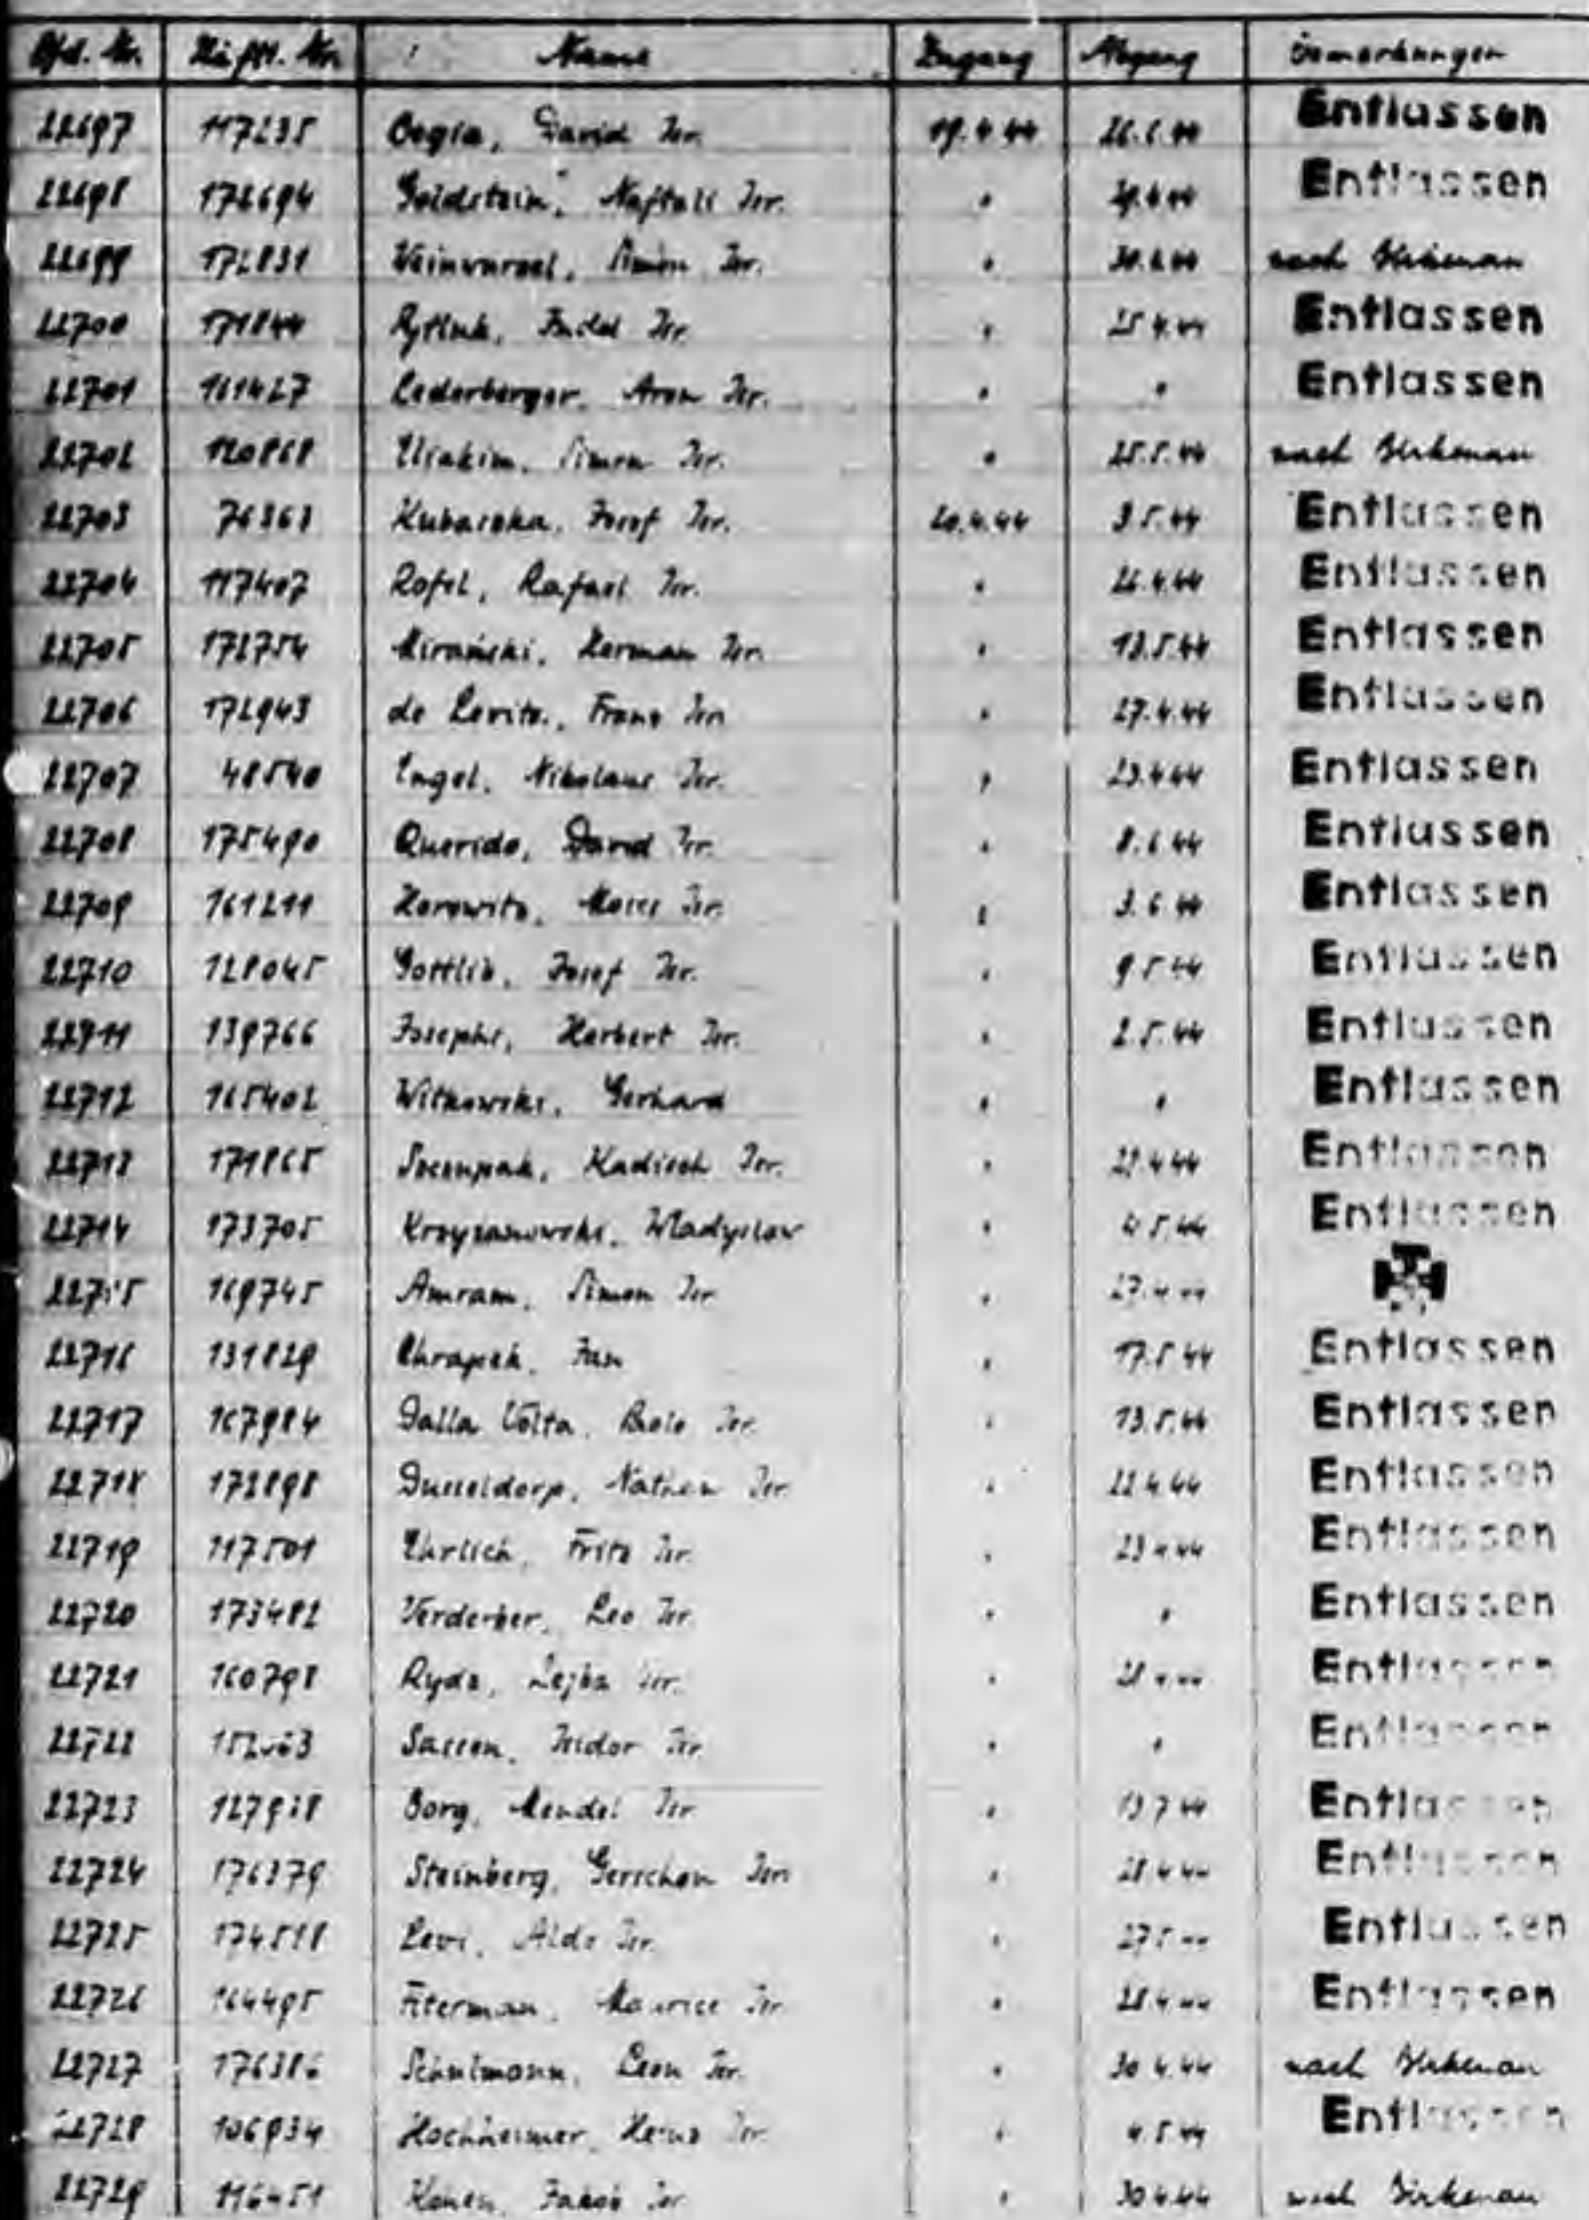 Lfd. Nr. Häftl. Nr. Name Zugang Abgang Bemerkungen
22697 117235 Cegla, David Isr. 19.4.44 Entlassen
22698 172694 Goldstein, Naftali Isr. " 29.4.44 Entlassen
22699 172831 Weinwurzel, Simon Isr. " nach Birkenau
22700 171844 Isr. " 25.4.44 Entlassen
22701 161427 Lederberger, Aron Isr. " " Entlassen
22702 120868 Eliakim, Simon Isr. " 25.5.44 nach Birkenau
22703 76363 Josef Isr. 20.4.44 3.5.44 Entlassen
22704 117407 Rofel, Rafael Isr. " 26.4.44 Entlassen
22705 172754 Miranski, Herman Isr. " 13.5.44 Entlassen
22706 172943 de Levita, Franz Isr. " 27.4.44 Entlassen
22707 48540 Engel, Nikolaus Isr. " 23.4.44 Entlassen
22708 175490 Querido, David Isr. " 8.6.44 Entlassen
22709 161211 Horowitz, Moses Isr. " 3.6.44 Entlassen
22710 128045 Gottlib, Josef Isr. " 9.5.44 Entlassen
22711 139766 Josephs, Herbert Isr. " 2.5.44 Entlassen
22712 165402 Witkowski, Gerhard " " Entlassen
22713 171865 Szczupak, Kadisch Isr. " Entlassen
22714 173705 Krzyzanowski, Wladyslaw " 4.5.44 Entlassen
22715 169745 Amram, Simon Isr. " 27.4.44
22716 131829 Chrapek, Jan " 17.5.44 Entlassen
22717 167984 Dalla Volta, Paolo Isr. " 13.5.44 Entlassen
22718 172898 Dusseldorp, Nathan Isr. " 22.4.44 Entlassen
22719 117501 Ehrlich, Fritz Isr. " 23.4.44 Entlassen
22720 173482 Verderber, Leo Isr. " " Entlassen
22721 160798 Ryda, Lejba Isr. " 28.4.44 Entlassen
22722 Sassen, Isidor Isr. " " Entlassen
22723 127938 Borg, Mendel Isr. " 13.7.44 Entlassen
22724 176379 Steinberg, Gerschon Isr. " 28.4.44 Entlassen
22725 174518 Levi, Aldo Isr. " 27.5.44 Entlassen
22726 164495 Fiterman, Maurice Isr. " 28.4.44 Entlassen
22727 176386 Schulmann, Leon Isr. " 30.4.44 nach Birkenau
22728 106934 Hochheimer, Heinz Isr. " 4.5.44 Entlassen
22729 116451 Jakob Isr. " 30.4.44 nach Birkenau